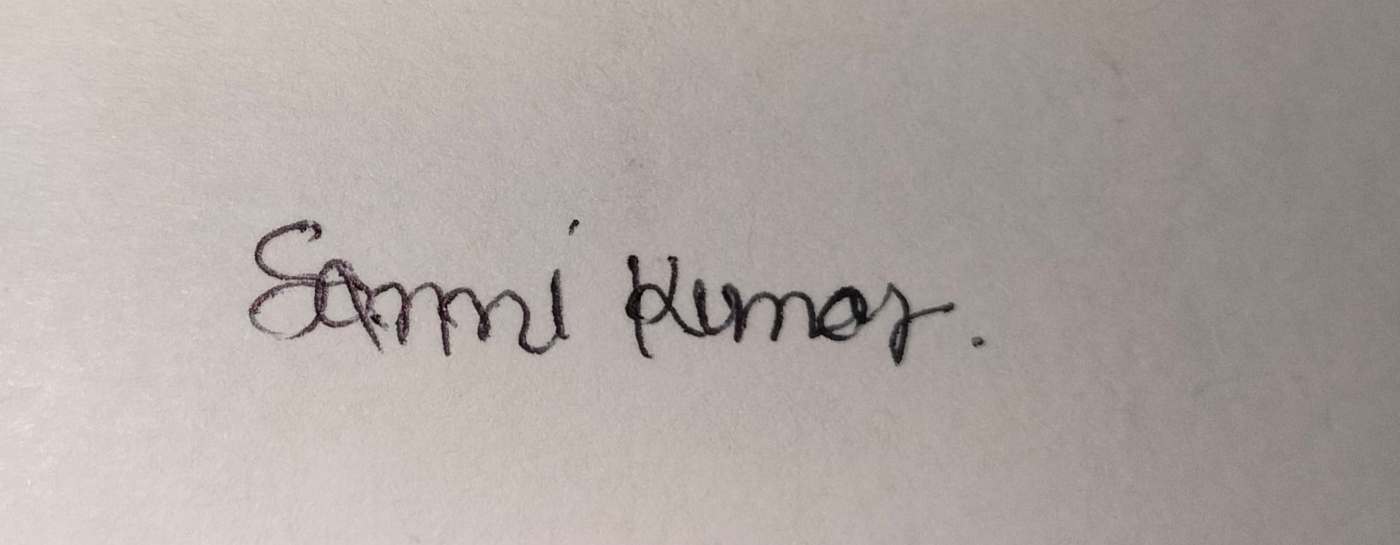 Sanni Kumar.